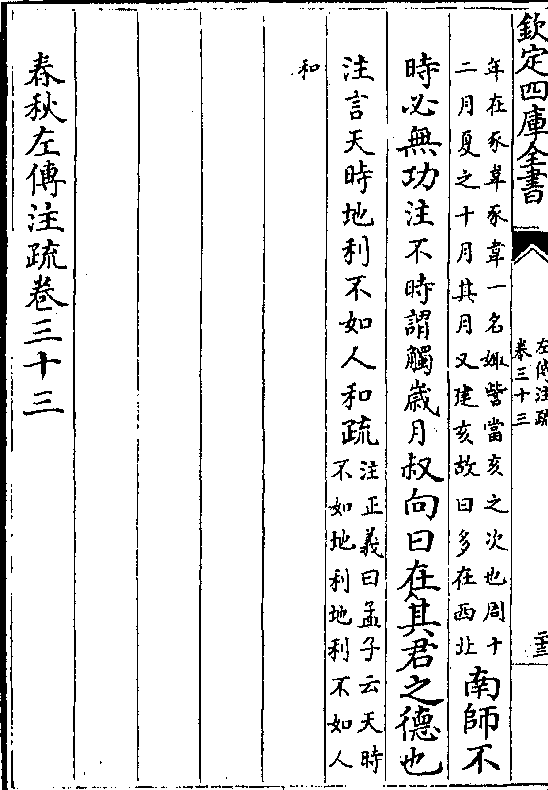 欽定四庫全書
左傳注疏
卷三十三
二三
年在豕韋豕韋一名娵訾當亥之次也周十
二月夏之十月其月又建亥故曰多在西北
南師不
時必無功注不時謂觸歲月叔向曰在其君之德也
注言天時地利不如人和疏
注正義曰孟子云天時
不如地利地利不如人
和
春秋左傳注疏卷三十三